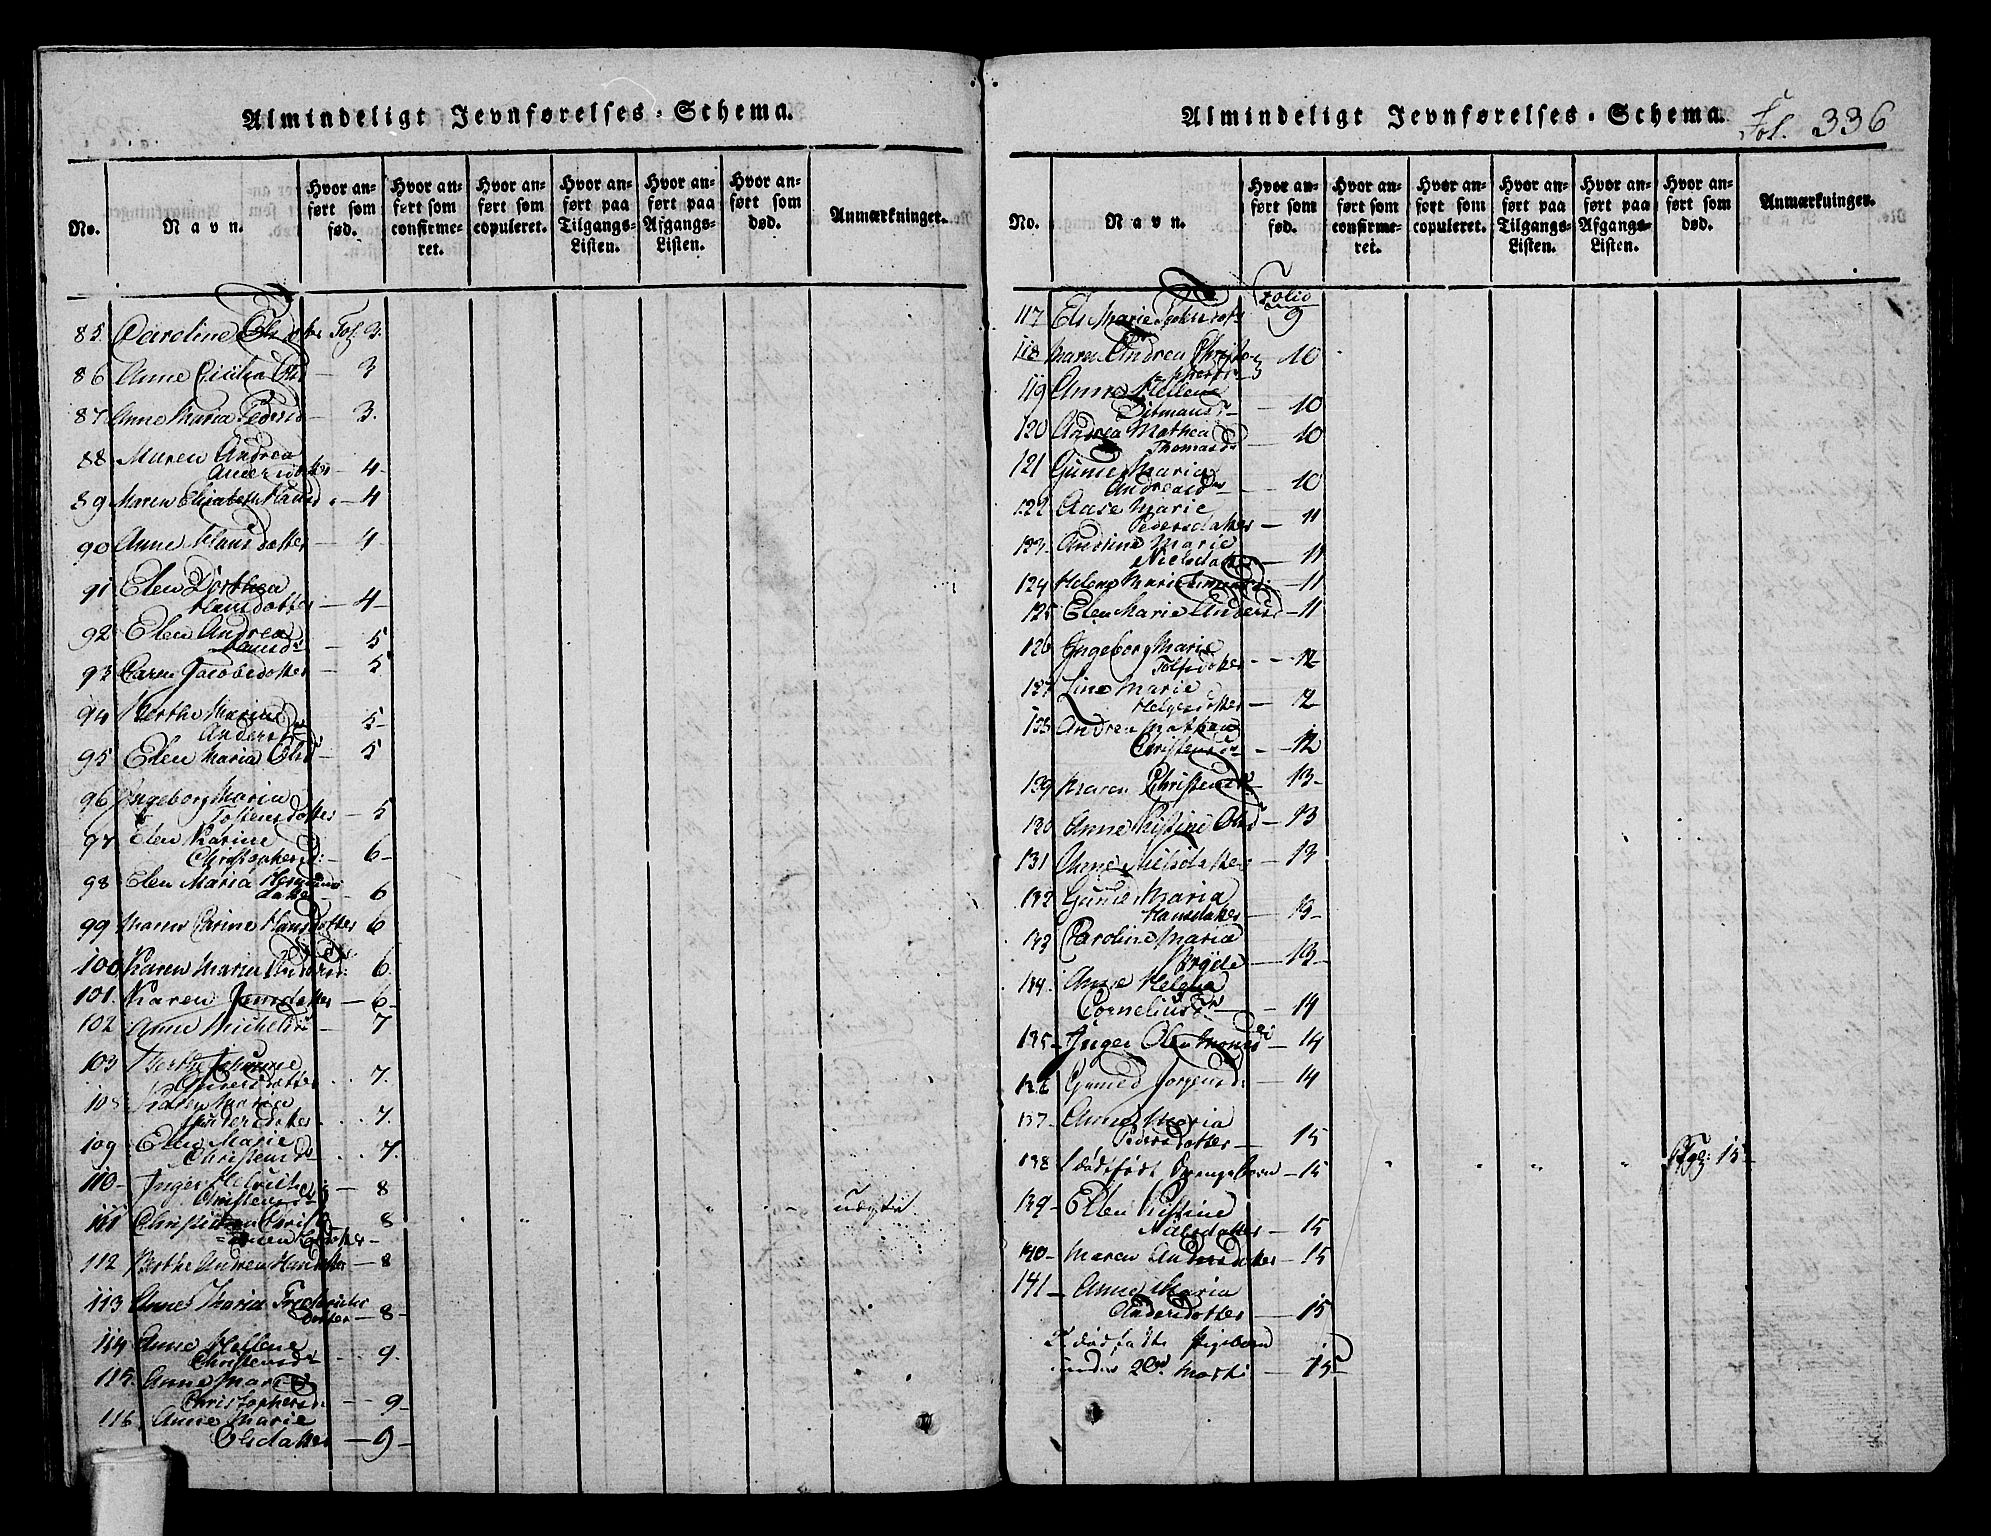 Almindeligt Jevnførelses-Schema.
No.
Navn.
Hvor an-
ført som
fød.
Hvor an-
ført som
confirme-
ret.
Hvor an-
ført som
copuleret.
Hvor an-
ført paa
Tilgangs-
Listen.
Hvor an-
ført paa
Afgangs-
Listen.
Hvor an-
ført som
død.
Anmærkninger.
85. Caroline Olsdotter Fol. 3.
86 Anne Cicilia Ols 3
87 Anne Maria Peders 3.
88 Maren Andrea
Andersdotter 4
89 Maren Elisabeth Hansd. 4
90 Anne Hansdotter 4
91 Elen Dorthea
Hansdotter 4
92 Elen Andrea
Hansdr 5
93 Caren Jacobsdotter 5
94 Berthe Marine
Andersdr 5
95 Elen Maria Olsdr 5
96 Ingeborg Maria
Tostensdotter 5
97 Elen Karine
Christophersd: 6
98 Elen Maria
datter 6
99 Maren Carine Hansdotter 6
100 Karen Maria Anders: 6.
101. Karen Jensdatter 6
102 Anne Michelsd 7
103 Berthe Johanne
Gundersdotter 7.
Karen Maria
Andersdotter 7.
109 Elen Marie
Christensdr 7.
110 Inger
Christensdr 8
111 Christiane Christi
8 udgår
112 Berthe Andrea Hansdatter 8
113 Anne Maria Frederichs
dotter 8
114 Anne Hellene
Christensdr 9.
115. Anne Marie
Christophersdr 9
116 Anne Marie
Olsdatter 9
Almindeligt Jevnførelses-Schema.
Fol. 336
No.
Navn.
Hvor an-
ført som
fød.
Hvor an-
ført som
confirme-
ret.
Hvor an-
ført som
copuleret.
Hvor an-
ført paa
Tilgangs-
Listen.
Hvor an-
ført paa
Afgangs-
Listen.
Hvor an-
ført som
død.
Anmærkninger.
Folio
117 Els Marie 9
118 Maren Andrea Christo
phersdr 10
119 Anne Hellene
Ditmansdr 10
120 Andrea Mathea
Thomasdr 10
121 Gunne Maria
Andreasdr 10
122 Aase Marie
Pedersdatter 11
123 Andrine Marie
Nielsdatter 11
124 Helene Marie 11
125 Elen Marie Andersd 11
126 Ingeborg Marie
Tolfsdatter 12
127 Line Marie
Helgesdatter 12
128 Andrea Mathea
Christensdr 12
129 Maren Christensdr 13
130 Anne Kistine Olsd 13
131 Anne Nielsdatter 13
132 Gunne Maria
Hansdatter 13
133 Caroline Maria
Bryde 13
134. Anne Helena
Corneliusdr 14
135 Inger Olea Monsdr 14
136 Gunild Jorgensd: 14
137 Anne Maria
Pedersdotter 15
138 1 dødfødt Drengebarn 15 Pag: 15
139 Ellen Kistine
Nielsdatter 15
140 Maren Andersdatter 15
141 Anne Maria
Andersdotter 15
dødfødte Pigebarn
under 20d Marti 15